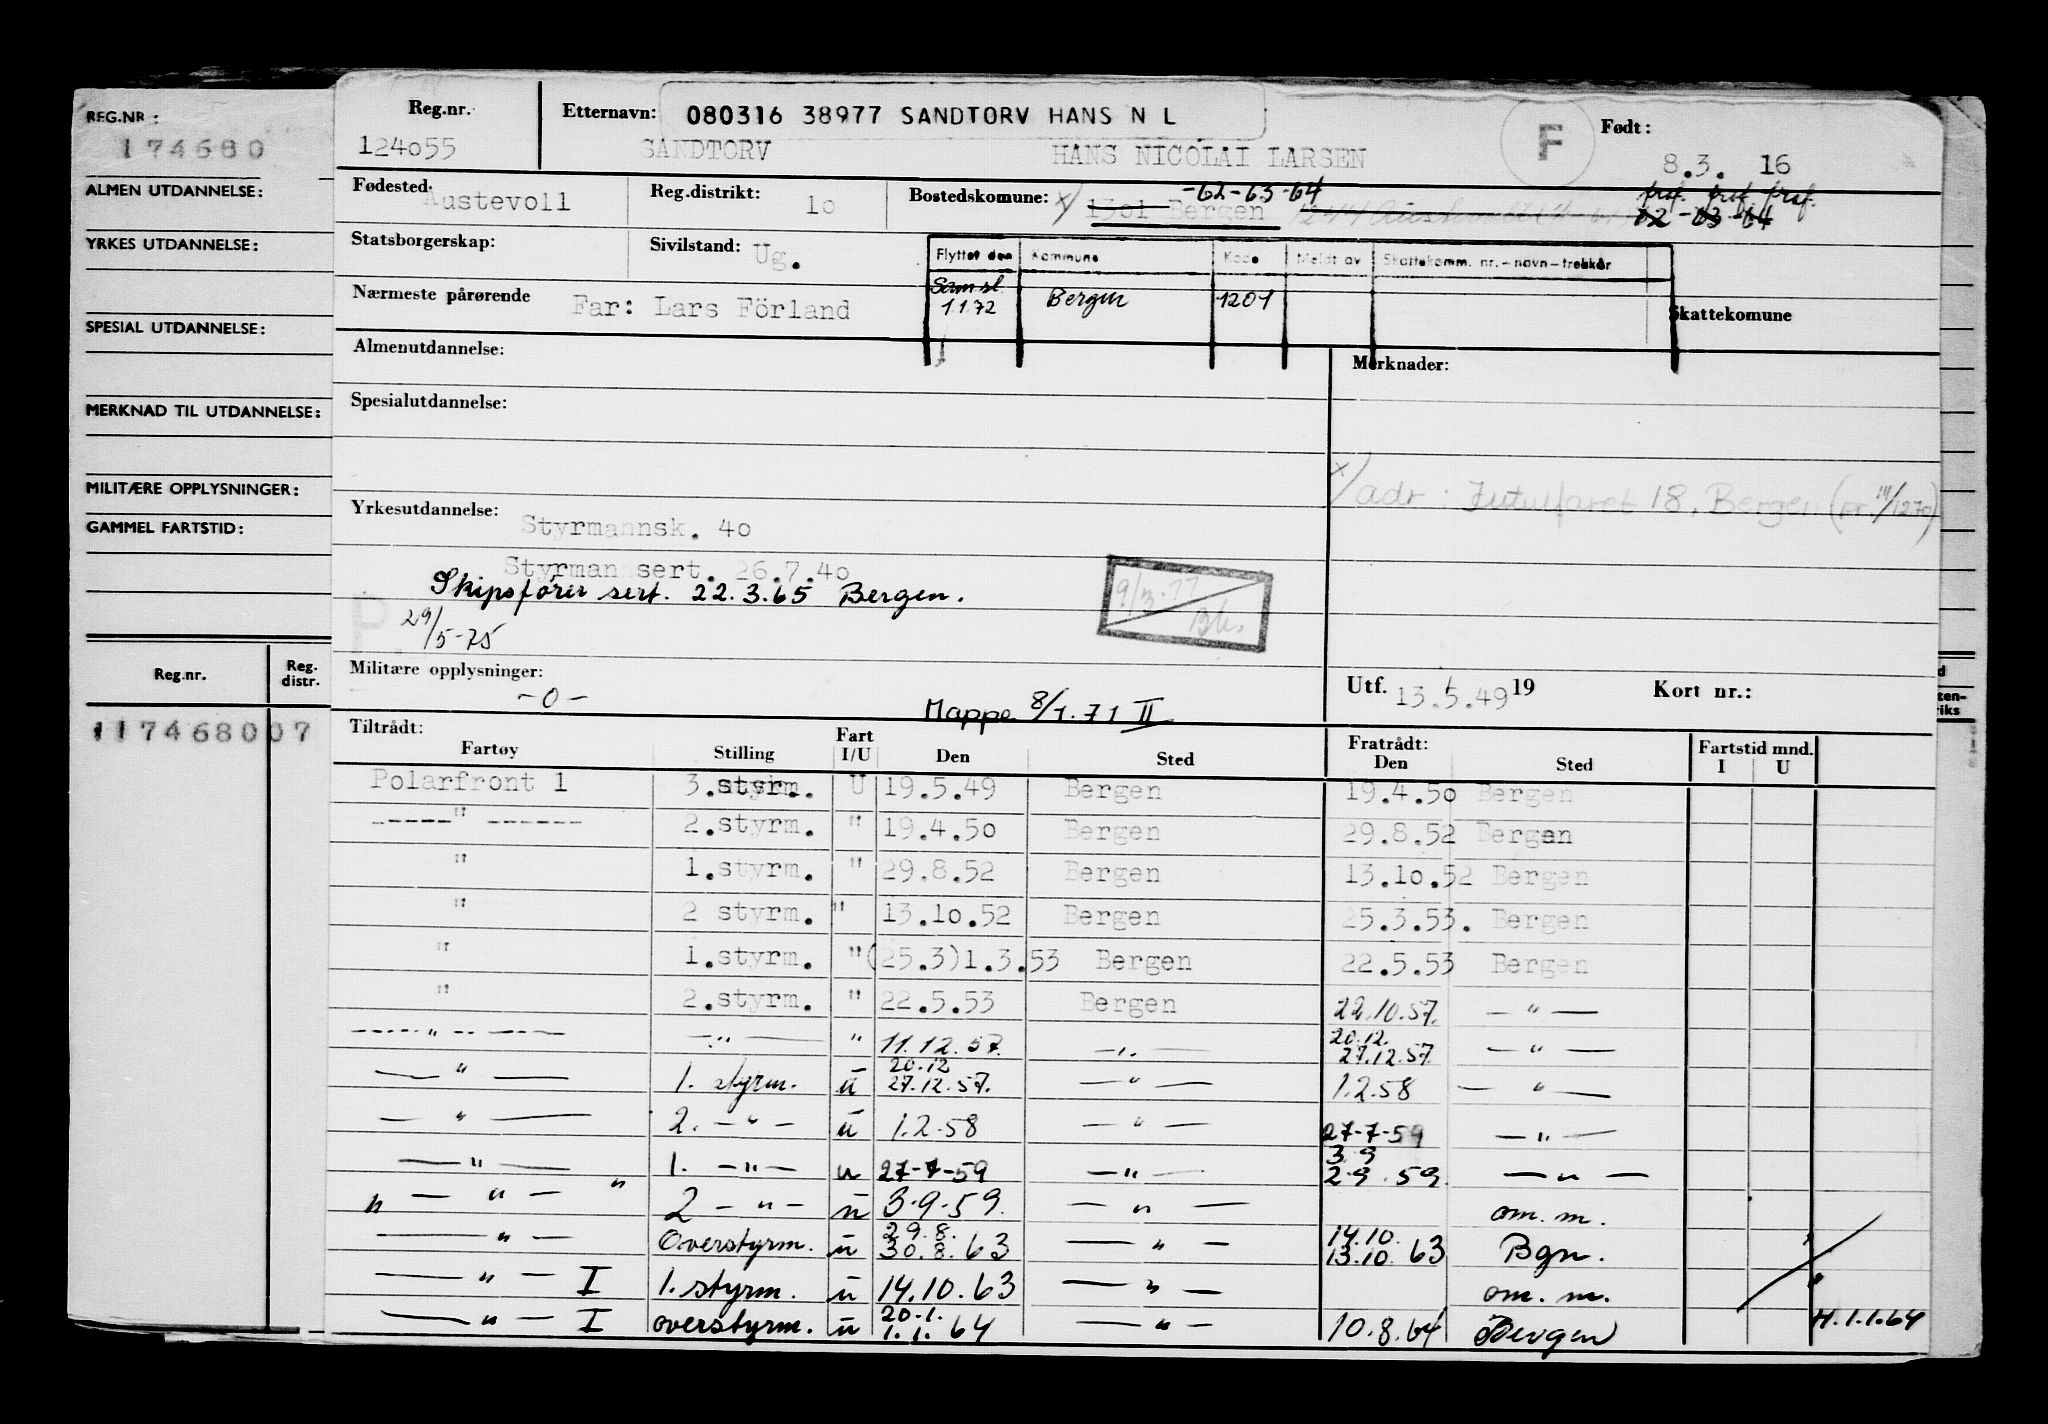 REG.NR :
174680
ALMEN UTDANNELSE:
YRKES UTDANNELSE:
SPESIAL UTDANNELSE:
MERKNAD TIL UTDANNELSE:
MILITÆRE OPPLYSNINGER:
GAMMEL FARTSTID:
Reg.nr. Reg. distr.
117468007
Reg.nr. Etternavn: 080316 38977 SANDTORV HANS N L F Født:
124055 SANDTORV HANS NICOLAI LARSEN 8.3. 16
Fødested: Austevoll Reg.distrikt: 10 Bostedskomune: x) 1301 Bergen -62-63-64
prf. prf. prf.
62 -63 -64
Statsborgerskap: Sivilstand: Ug.
Flyttet den Kommune Kode Meldt av Skattekomm. nr.-navn-trekkår
Sam.sl. 1.1.72 Bergen 1201
Nærmeste pårørende Far: Lars Förland Skattekomune
Almenutdannelse: Merknader:
Spesialutdannelse:
x) adr: 18, Bergen
Yrkesutdannelse: Styrmannsk. 40
Styrmannsert. 26.7.40
Skipsfører sert. 22.3.65 Bergen.
29/5-75
9/3.77
Militære opplysninger: Utf. 13.5.49 19 Kort nr.:
-0- Mappe 8/1.71 II
Tiltrådt: Fratrådt: Fartstid mnd.
Fartøy Stilling Fart I/U Den Sted Den Sted I U
Polarfront 1 3.styrm. U 19.5.49 Bergen 19.4.50 Bergen
-----"------ 2.styrm. " 19.4.50 Bergen 29.8.52 Bergen
" 1.styrm. " 29.8.52 Bergen 13.10.52 Bergen
" 2 styrm. " 13.10.52 Bergen 25.3.53. Bergen
" 1.styrm. " (25.3)1.3.53 Bergen 22.5.53 Bergen
" 2.styrm. " 22.5.53 Bergen 22.10.57. — " —
-----"----- — " — " 11.12.57. — " — 20.12. 27.12.57. — " —
— " — 1. styrm. u 20.12 27.12.57. — " — 1.2.58 — " —
— " — 2. — " — u 1.2.58 — " — 27-7-59 — " —
— " — 1. — " — u 27-7-59 — " — 3.9 2.9.59. — " —
" — " — " 2 — " — u 3.9.59. — " — om. m.
— " — Overstyrm. u 29.8. 30.8.63 — " — 14.10. 13.10.63 Bgn.
— " — I 1. styrm. u 14.10.63 — " — om. m.
— " — I overstyrm. u 20.1. 1.1.64 — " — 10.8.64 Bergen H.1.1.64